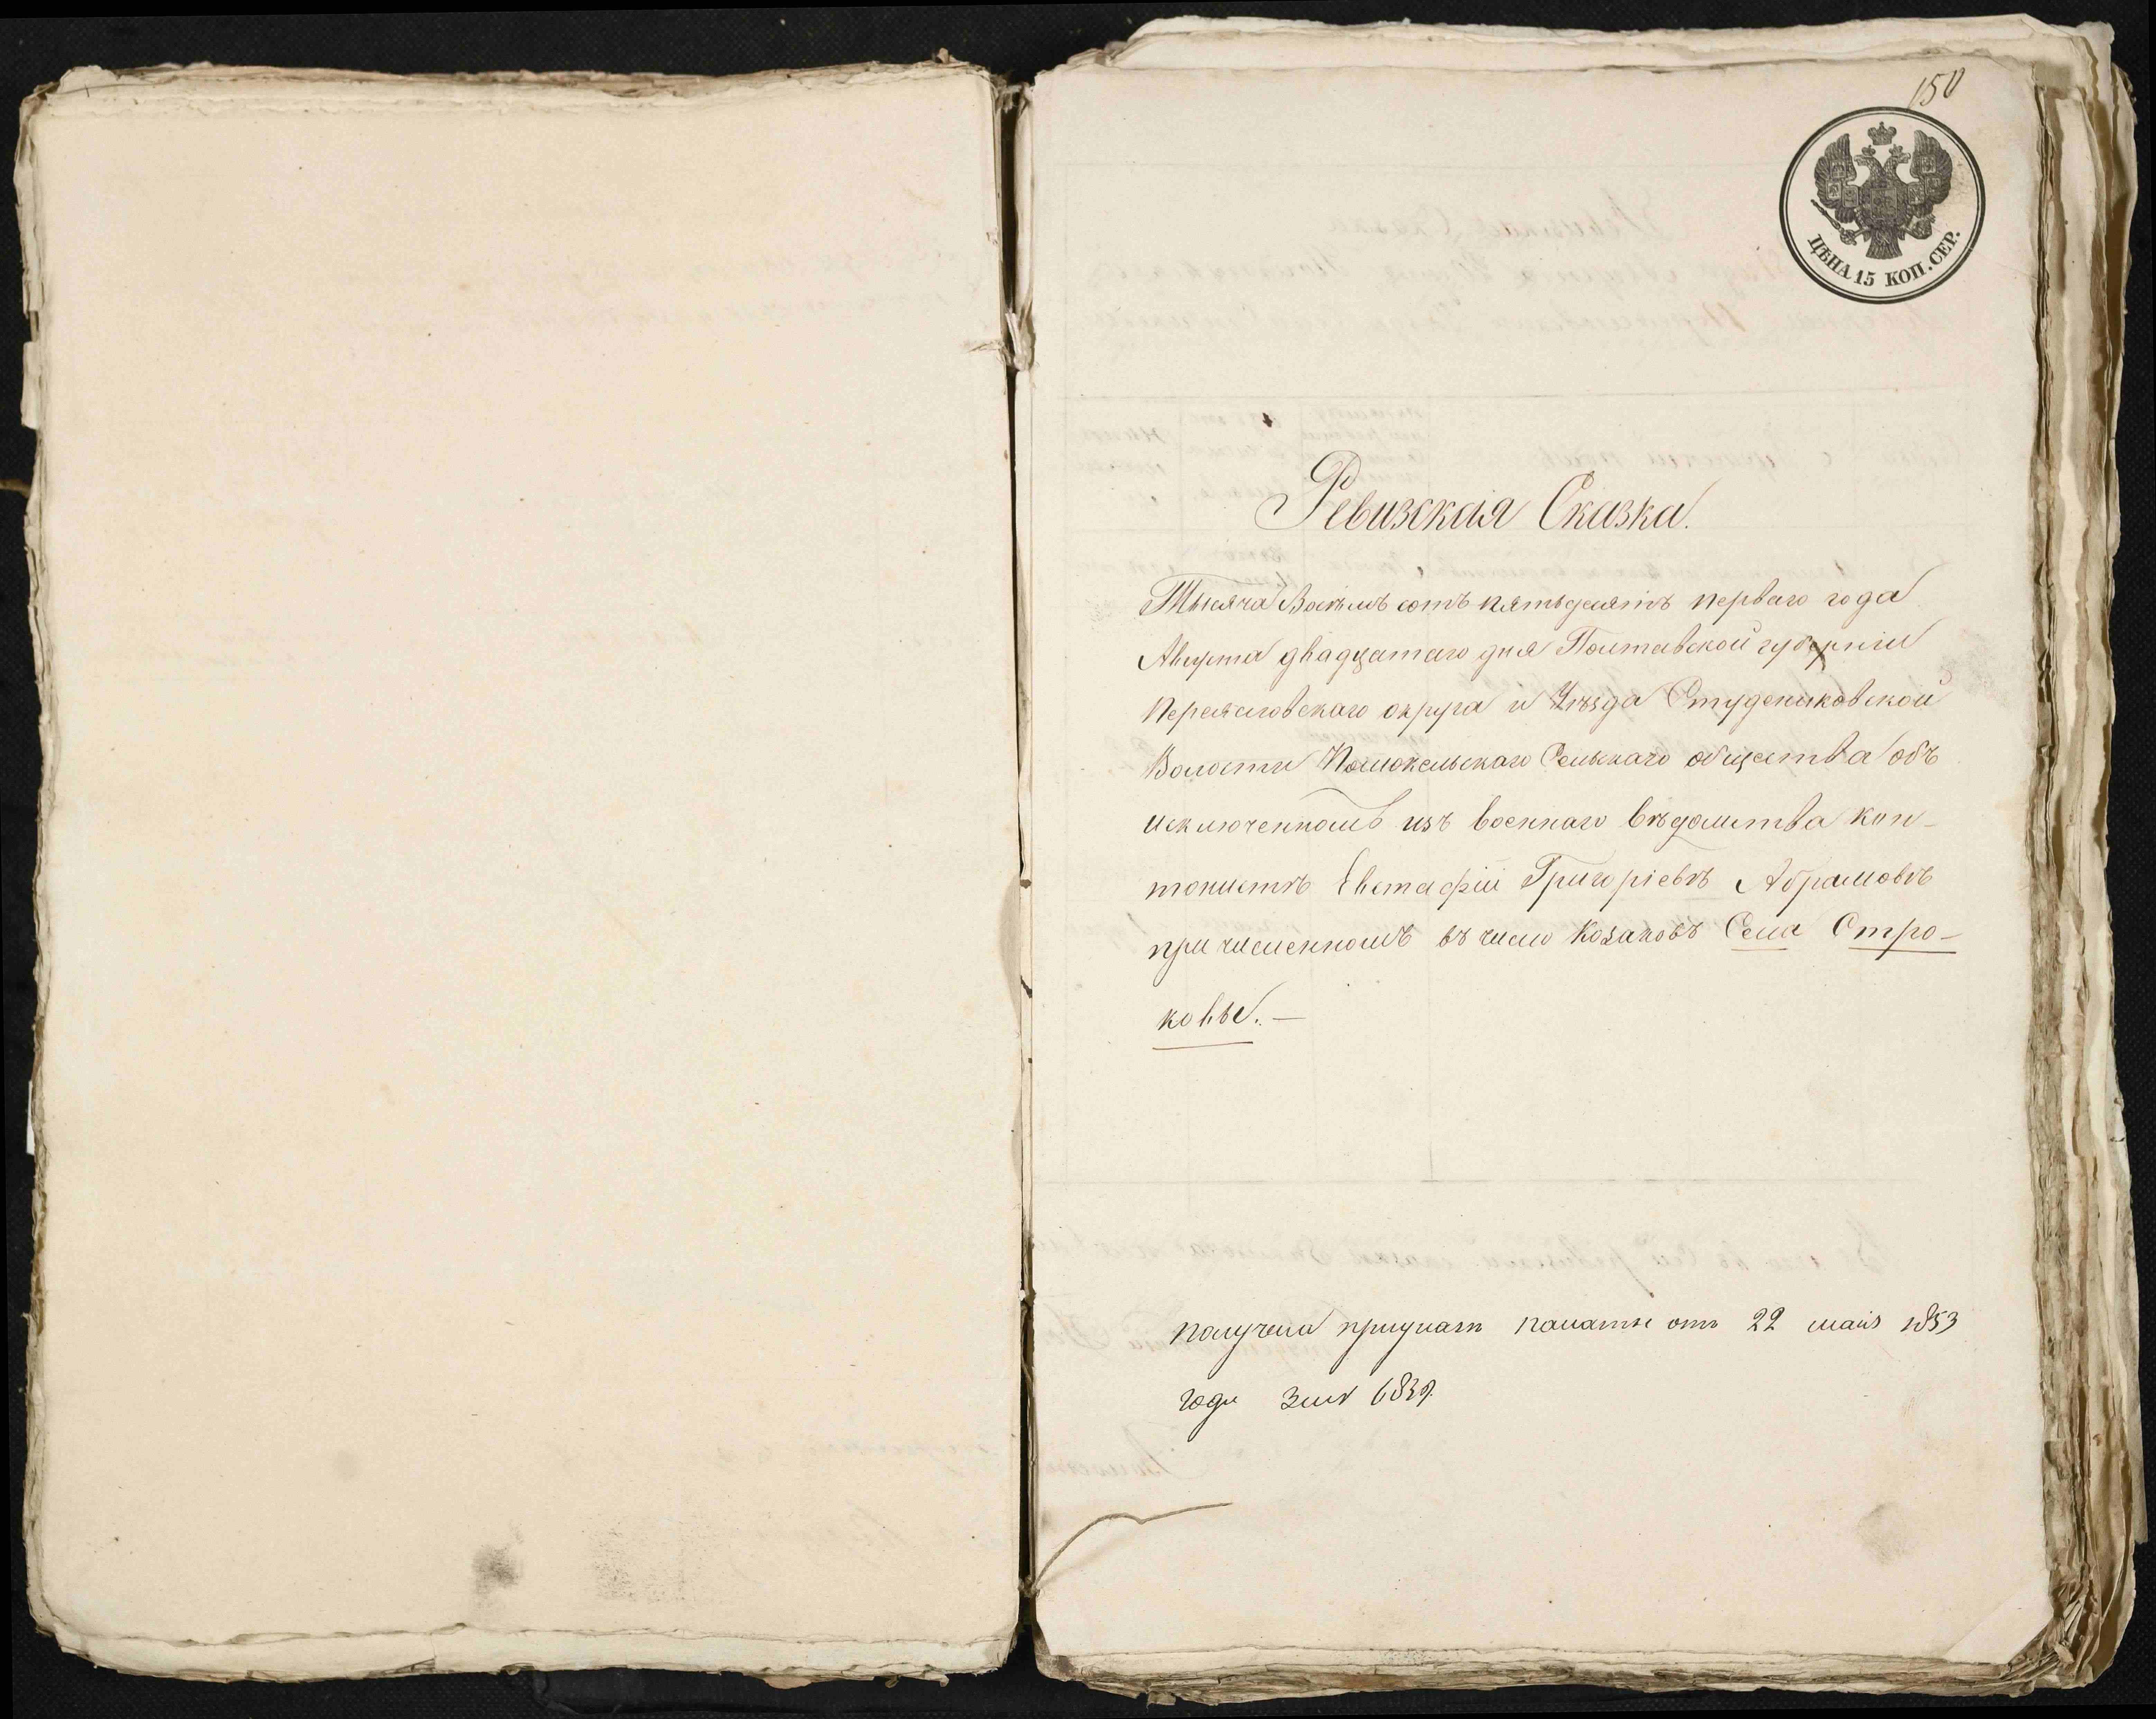 150
ЦѢНА 15 КОП. СЕР.
Ревизская Сказка.
Тысяча Восѣмъ сотъ пятьдесятъ перваго года
Августа двадцатаго дня Полтавской губерніи
Переясловскаго округа и Уѣзда Студениковской
Волости Помокельскаго Сельскаго общества объ
исключенномъ изъ военнаго вѣдомства кон-
тонистѣ Евстафій Григорьевѣ Абрамовѣ
причисленномъ въ число Козаковъ Села Стро-
ковы.—
получена при указѣ палаты отъ 22 мая 1853
года за № 6839.